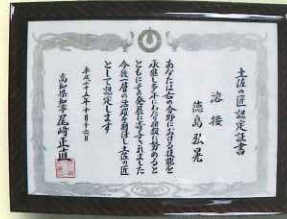 土佐の匠 認定証書
溶接
徳島弘晃
あなたは右の分野における技能を
承継し多年にわたり研鑽に努めると
ともにその発展に寄与されました
今後一層の活躍を期待し土佐の匠
として認定します
平成二十五年十月十六日
高知県知事 尾﨑正直